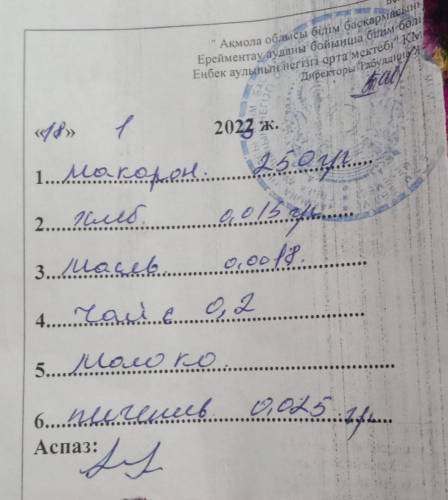 " Ақмола облысы білім басқармасының
Ерейментау ауданы бойынша білім бөлі
Еңбек ауылының негізгі орта мектебі" КМ
Директоры Габдуллина Ж
«18» 1 2023 ж.
1. макарон. 250 гр.
2. хлеб. 0,015 гр
3. Масло. 0,0018.
4. Чай с 0,2
5. Молоко.
6. печенье. 0,025 гр.
Аспаз: